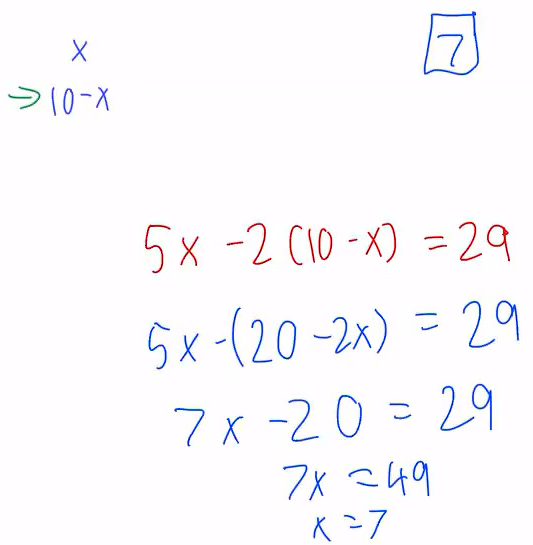 x
7
→ 10-x
5x -2(10-x) = 29
5x-(20-2x) = 29
7x -20 = 29
7x = 49
x = 7